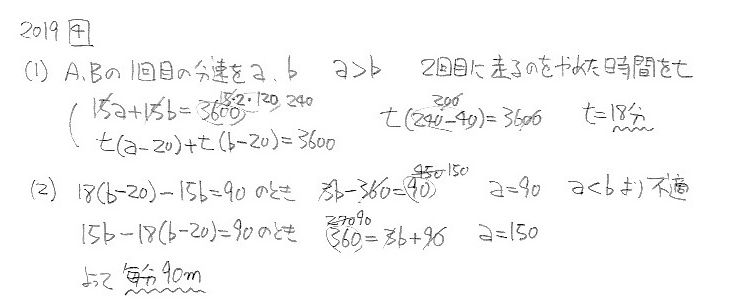 2019 4
(1) A,Bの1回目の分速をa、b a>b 2回目に走るのをやめた時間をt
15a+15b=3600 15・2・120, 240 t(240-40)=3600 200 t=18分
t(a-20)+t(b-20)=3600
(2) 18(b-20)-15b=90のとき 3b-360=90 450 150 a=90 a<bより不適
15b-18(b-20)=90のとき 360=3b+90 270 90 a=150
よって毎分90m